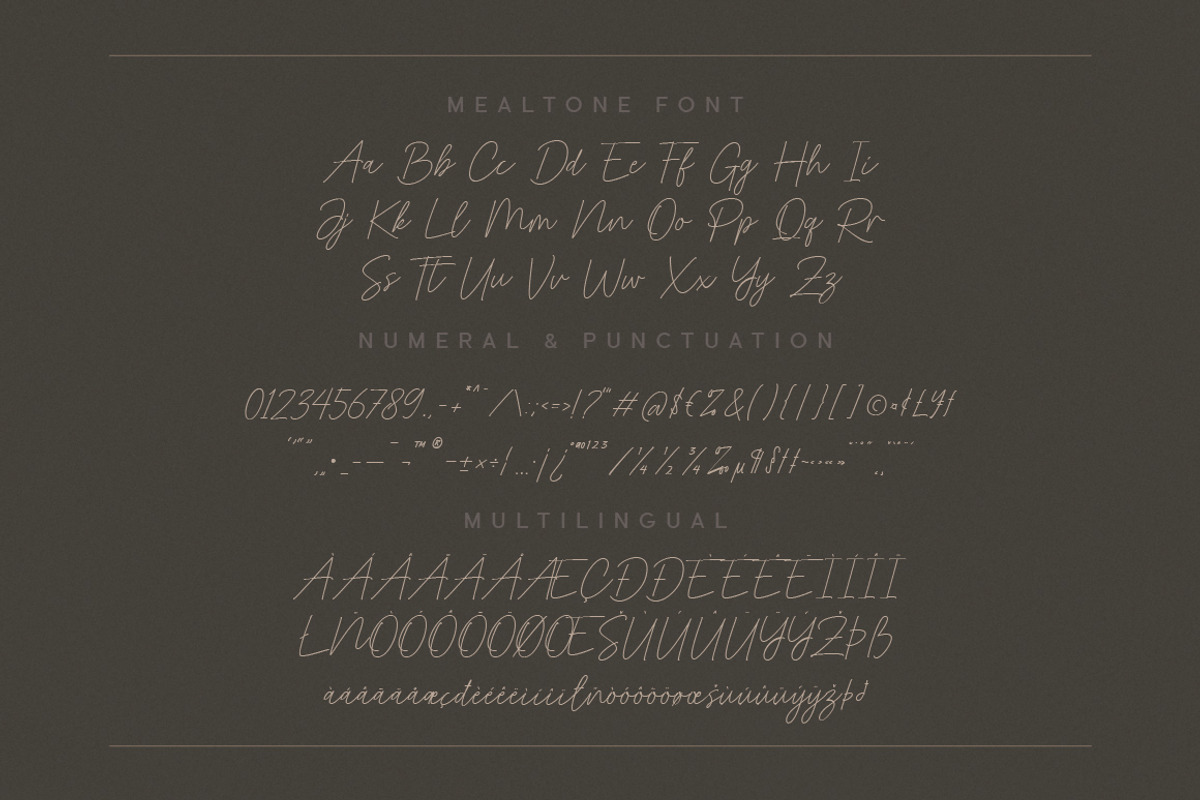 MEALTONE FONT
Aa Bb Cc Dd Ee Ff Gg Hh Ii
Jj Kk Ll Mm Nn Oo Pp Qq Rr
Ss Tt Uu Vv Ww Xx Yy Zz
NUMERAL & PUNCTUATION
0123456789.,-+*^~/\:;<=>!?'"#@$€%&(){|}[]©¤¢£¥ƒ
•_–—¯¬™®−±×÷|…·¦¿°ªº123⁄¼½¾‰µ¶§†‡~‹›«»
MULTILINGUAL
ÀÁÂÃÄÅÆÇÐĐÈÉÊËÌÍÎÏ
ŁÑÒÓÔÕÖØŒŠÙÚÛÜÝŸŽÞß
àáâãäåæçđèéêëìíîïłñòóôõöøœšùúûüýÿžþð